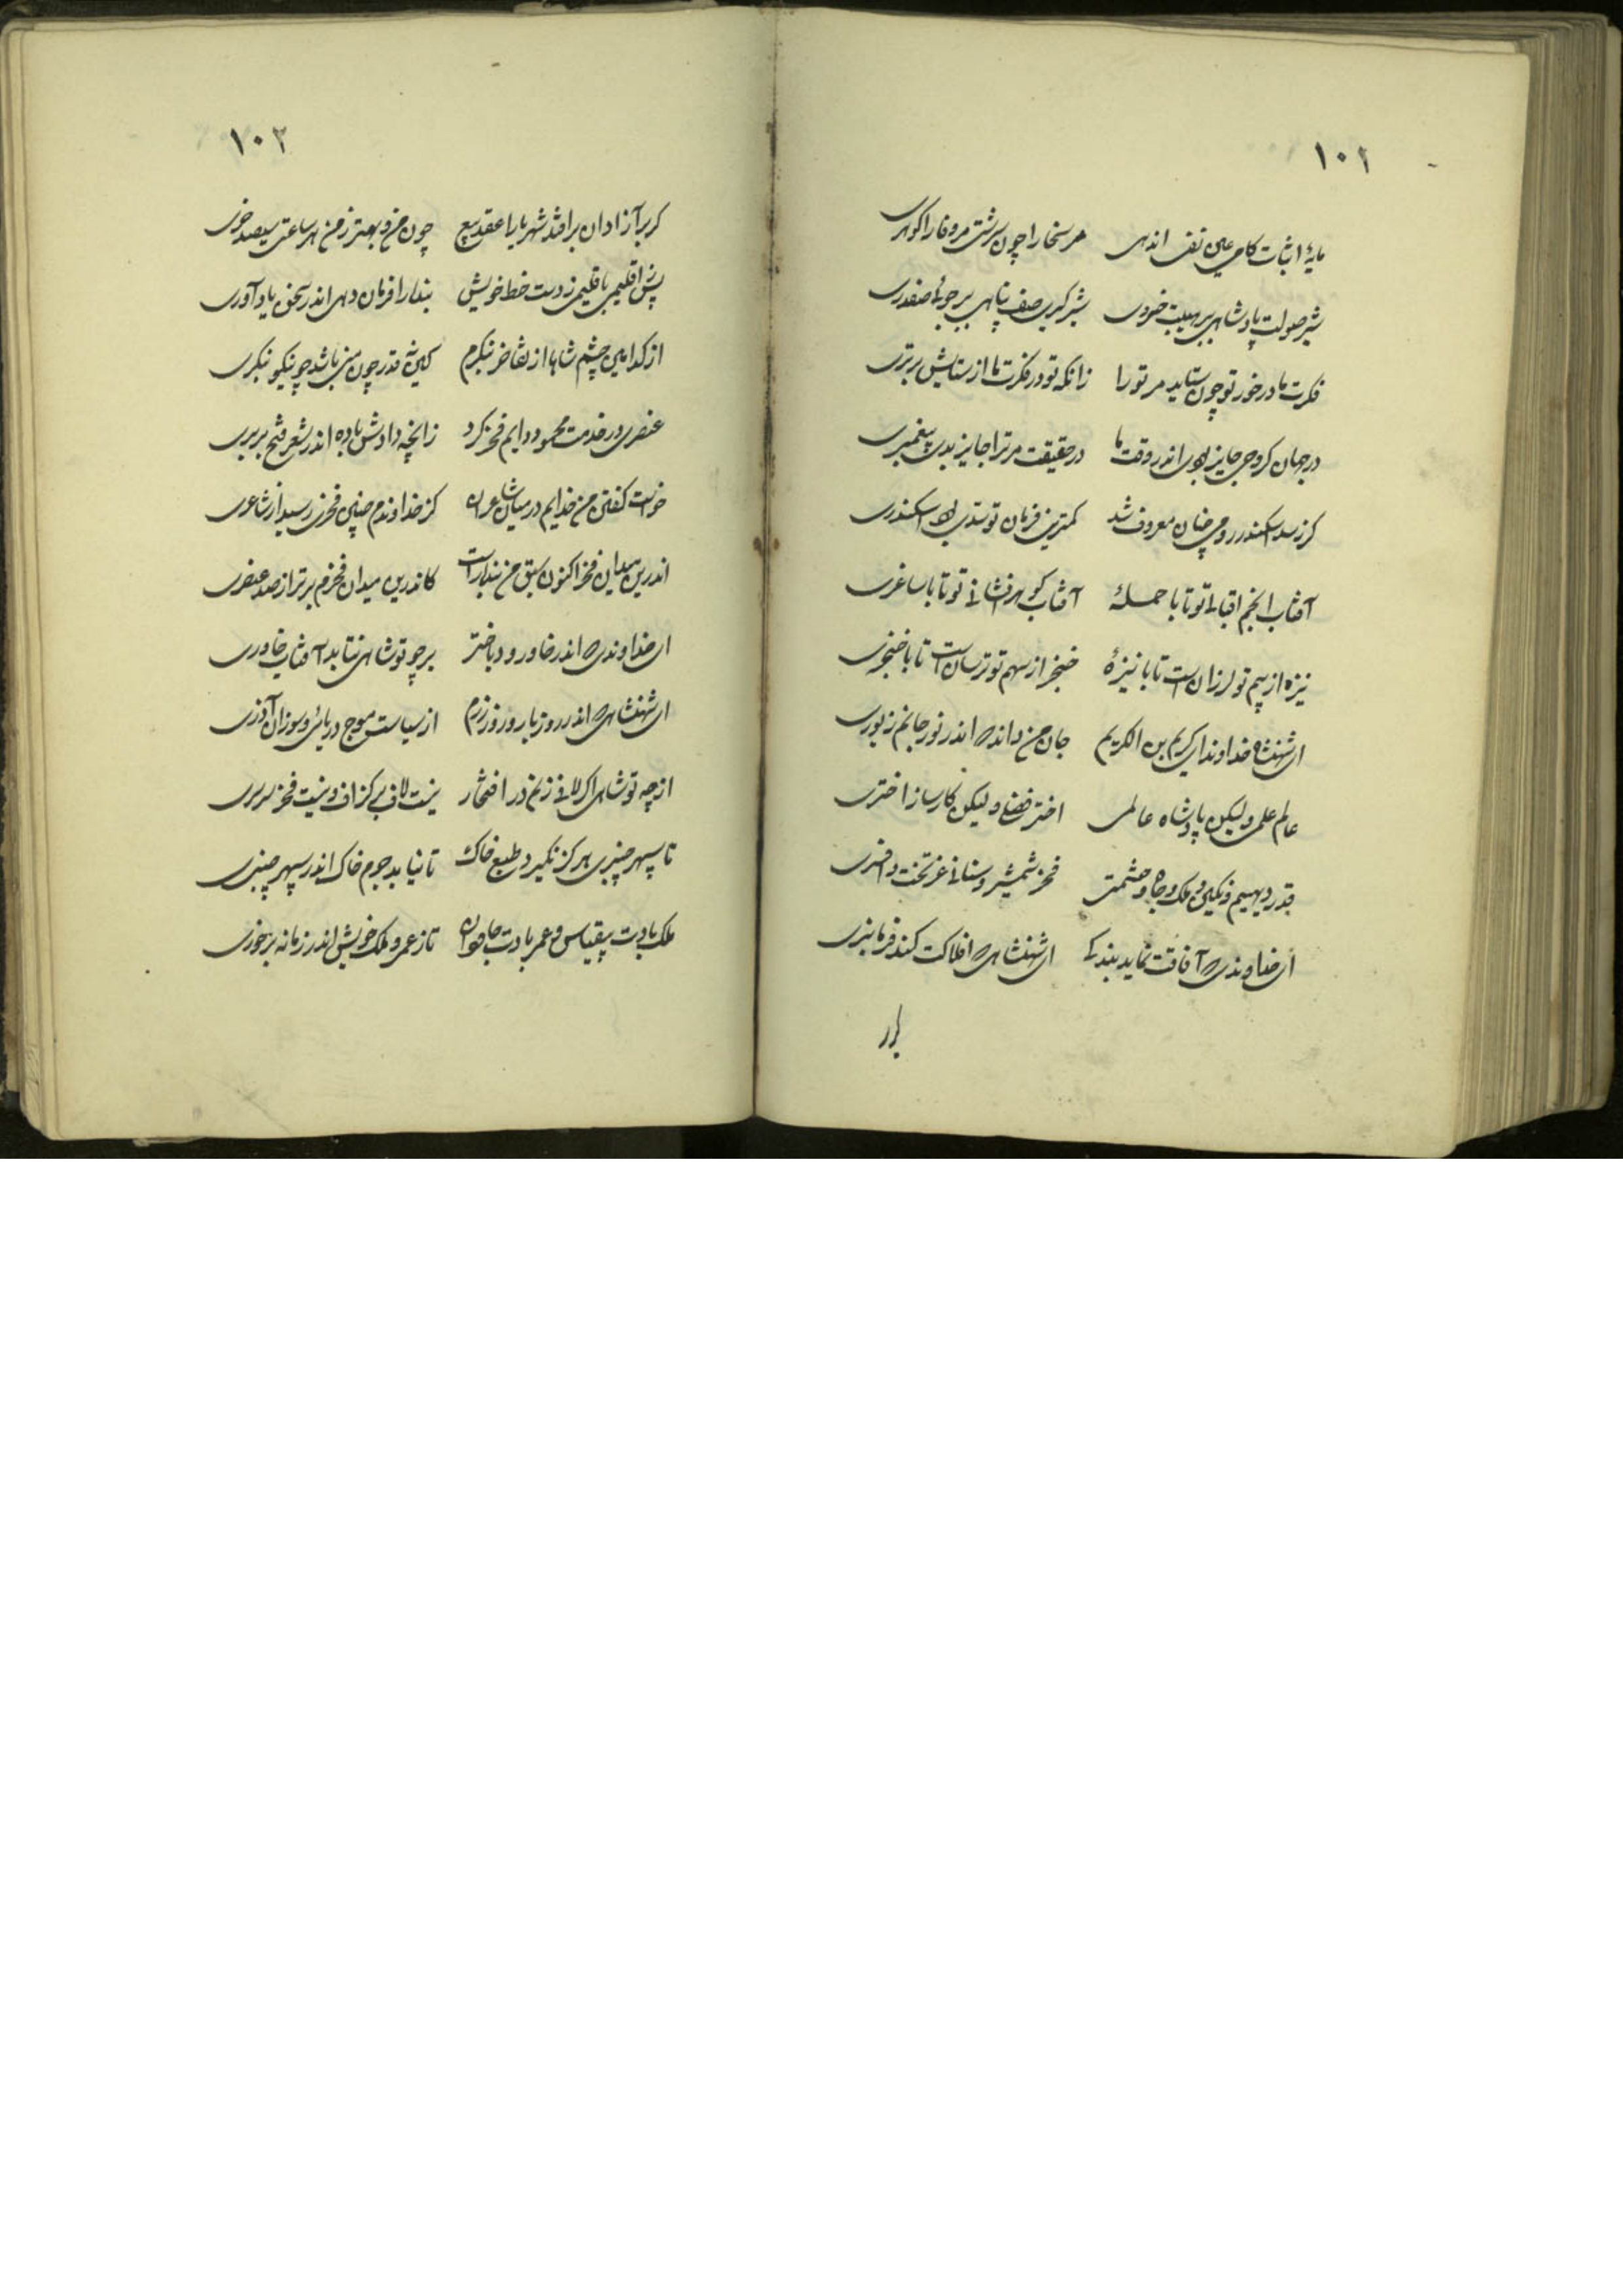 ۱۰۲
مایهٔ اثبات کامی عین نفی اندهی مر سخا را چون سرشتی مر وفا را گوهری
شیر صولت پادشاهی ببر هیبت خسروی شیر گیری صف پناهی ببر جوئی صفدری
فکرت ما در خور تو چون ستاید مر تو را زانکه تو در فکرت ما از ستایش برتری
در جهان گر وحی جایز بودی اندر وقت ما در حقیقت مر ترا جایز بدی پیغمبری
گر ز سد اسکندر رومی چنان معروف شد کمترین فرمان تو سدی بود اسکندری
آفتاب انجم اقبالی تو تا با حملهٔ آفتاب گوهر افشانی تو تا با ساغری
نیزه از بیم تو لرزان است تا با نیزهٔ خنجر از سهم تو ترسان است تا با خنجری
ای شهنشاه خداوندان کریم بن الکریم جان من داند که اندر نور جانم زیوری
عالم علمی ولیکن پادشاه عالمی اختر فضلی ولیکن کارساز اختری
قدر دیهیم و نگین و ملک و جاه و حشمتی فخر شمشیر و سنانی عز تخت و افسری
ای خداوندی که آفاقت نماید بندگی ای شهنشاهی که افلاکت کند فرمانبری
۱۰۳
گر بر آزادان بر افتد شهریارا عقد بیع چون من و بهتر ز من هر ساعتی سیصد خری
پس ز اقلیمی باقلیمی ز دست خط خویش بنده را فرمان دهی اندر سخن یاد آوری
از کدامین چشم شاها از تفاخر ننگرم کین قدر چون من نباشد چو نیکو بنگری
عنصری در خدمت محمود دایم فخر کرد زانچه دادش باده اندر شعر فتح بربری
خواست گفتن من خدایم در میان شاعران کز خداوندم چنین فخری رسید از شاعری
اندرین میدان فخر اکنون سبق من بنده راست کاندرین میدان فخرم برتر از صد عنصری
ای خداوندی که اندر خاور و در باختر بر چو تو شاهی نتابد آفتاب خاوری
ای شهنشاهی که اندر روز بار و روز رزم از سیاست موج دریائی و سوزان آذری
از چو تو شاهی اگر لافی زنم در افتخار نیست لاف بی گزاف و نیست فخر سرسری
تا سپهر چنبری هرگز نگیرد طبع خاک تا نیابد جرم خاک اندر سپهر چنبری
ملک بادت بیقیاس و عمر بادت جاودان تا ز عمر و ملک خویش اندر زمانه برخوری